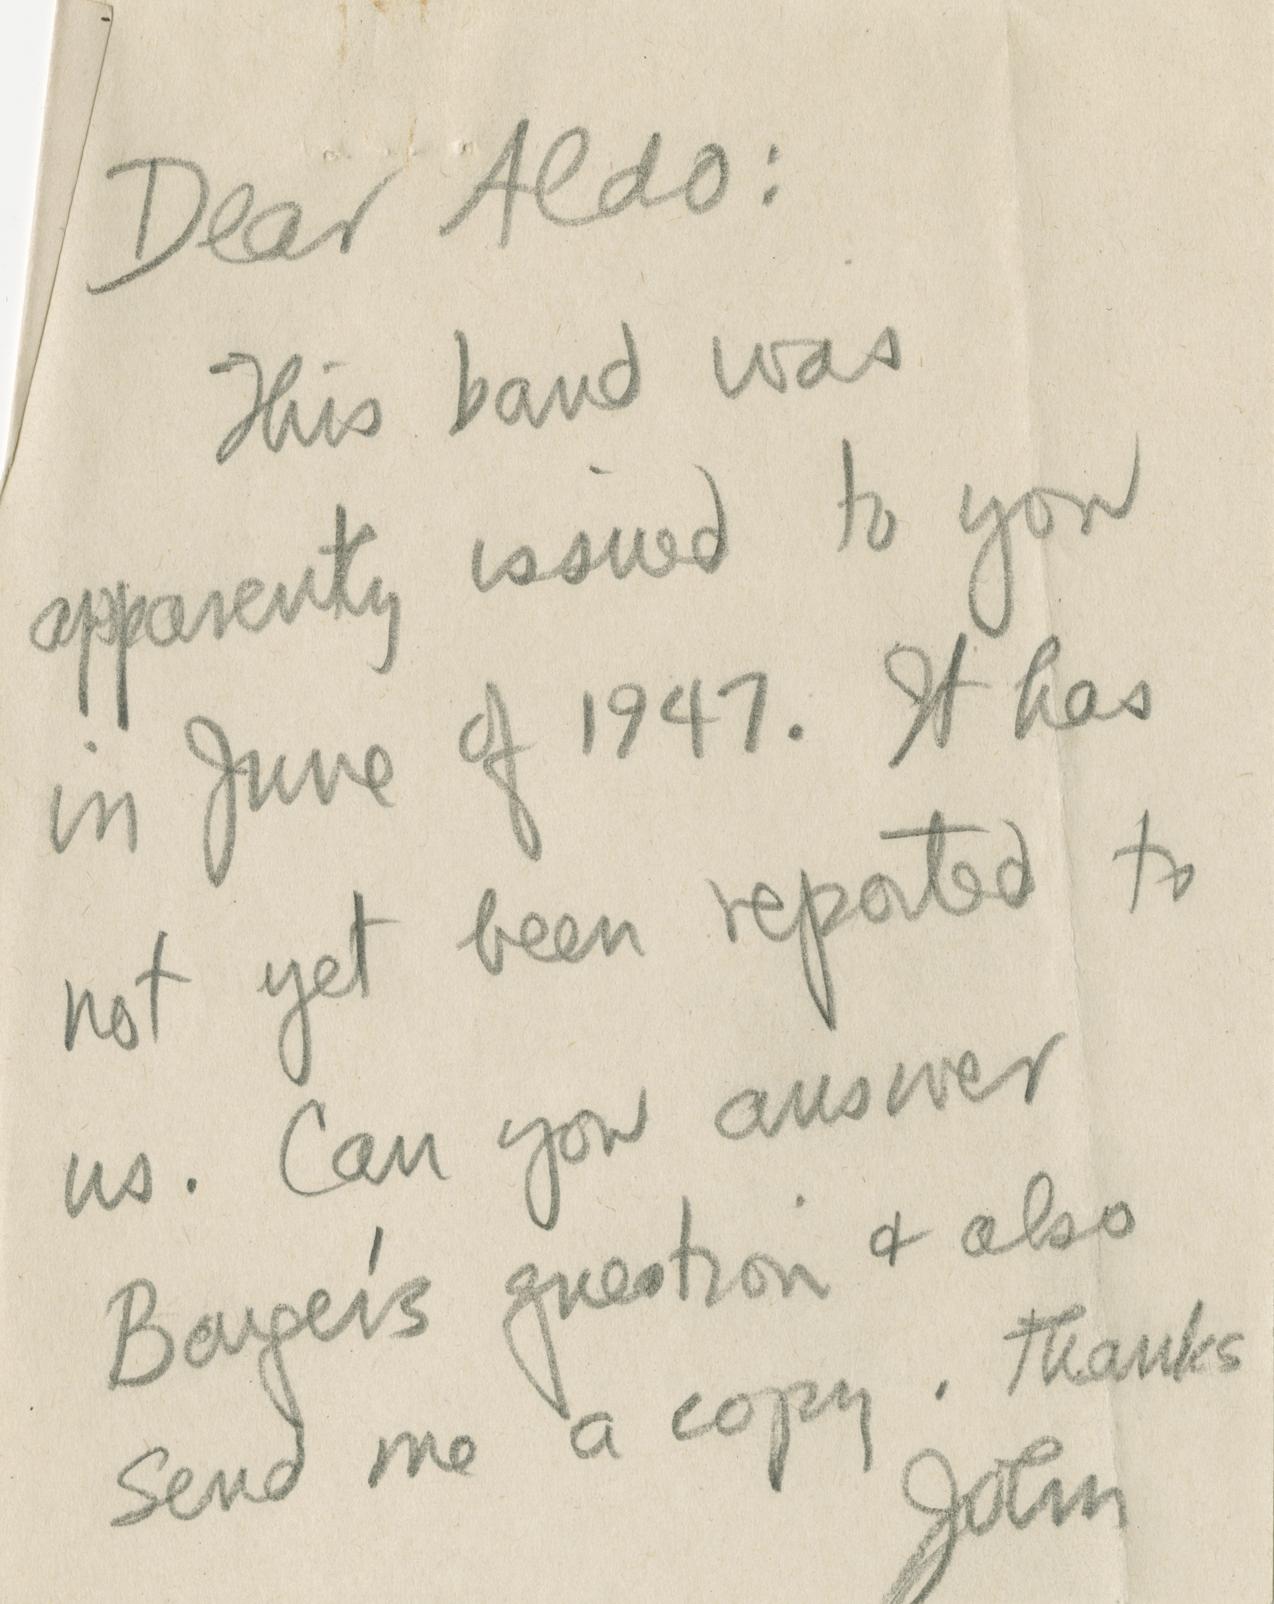 Dear Aldo:
This band was
apparenty issued to you
in June of 1947. It has
not yet been reported to
us. Can you answer
question & also
send me a copy. Thanks
John